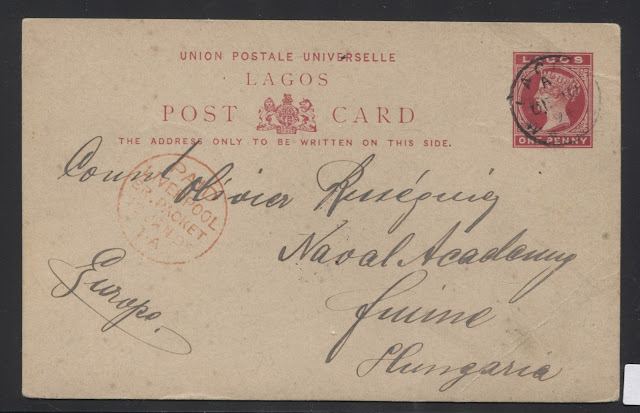 UNION POSTALE UNIVERSELLE
LAGOS
POST CARD
THE ADDRESS ONLY TO BE WRITTEN ON THIS SIDE.
LAGOS
ONE PENNY
PAID
LIVERPOOL
BR. PACKET
Count Olivier Rességuier
Naval Academy
Fiume
Hungaria
Europe.